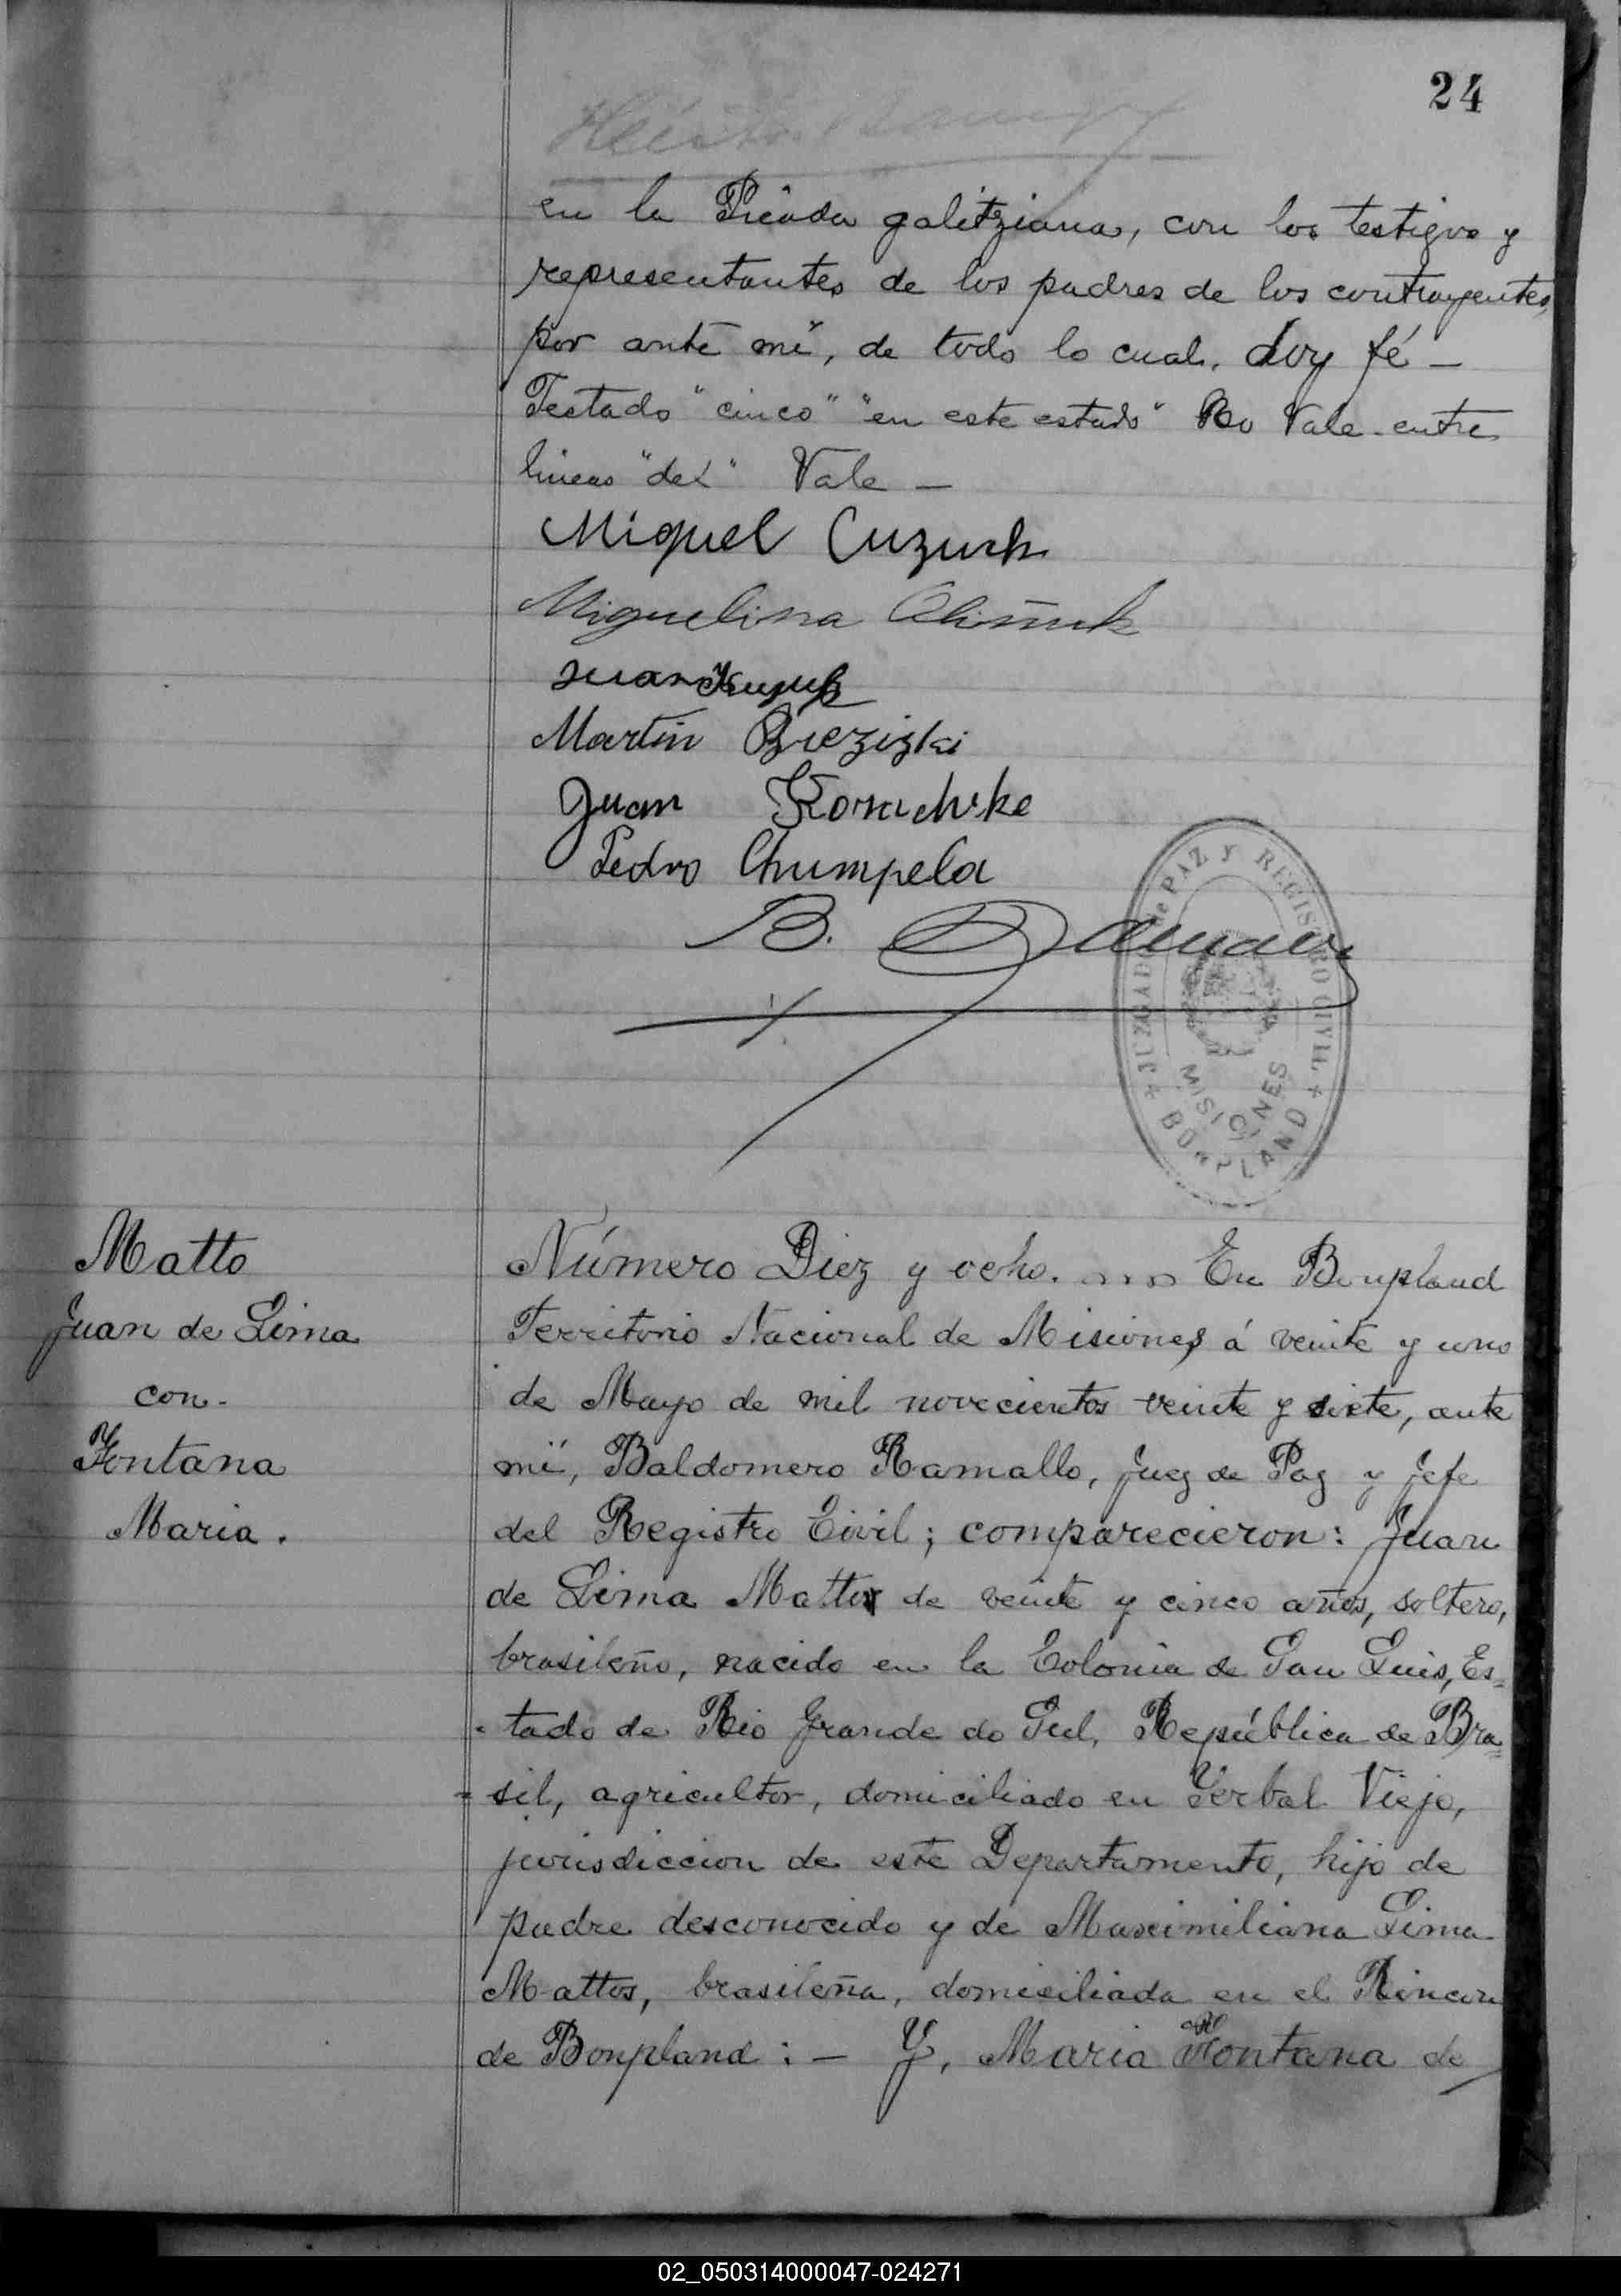 24
en la Picada galitziana, con los testigos y
representantes de los padres de los contrayentes,
por ante mi, de todo lo cual, doy fé —
Testado "cinco" "en este estado" No Vale - entre
lineas "del" Vale —
Miguel Cuzuck
Miguelina
Juan
Martin
Juan
Pedro Chumpela
B.
JUZGADO de PAZ y REGISTRO CIVIL
MISIONES
BONPLAND
Matto
Juan de Lima
con -
Fontana
Maria.
Número Diez y ocho. En Bonpland
Territorio Nacional de Misiones á veinte y uno
de Mayo de mil novecientos veinte y siete, ante
mi, Baldomero Ramallo, Juez de Paz y Jefe
del Registro Civil; comparecieron: Juan
de Lima Mattos de veinte y cinco años, soltero,
brasileño, nacido en la Colonia de San Luis, Es=
=tado de Rio Grande do Sul, República de Bra=
=sil, agricultor, domiciliado en Yerbal Viejo,
jurisdiccion de este Departamento, hijo de
padre desconocido y de Maximiliana Lima
Mattos, brasileña, domiciliada en el Rincon
de Bonpland: — Y, Maria Fontana de
02_050314000047-024271